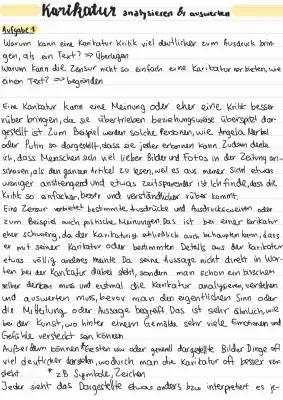 Karikatur analysieren & auswerten
Aufgabe 1
Warum kann eine Karikatur Kritik viel deutlicher zum Ausdruck brin-
gen, als ein Text? => Überlegen
Warum kann die Zensur nicht so einfach eine Karikatur verbieten, wie
einen Text? => begründen
Eine Karikatur kann eine Meinung oder eher eine Kritik besser
rüber bringen, da sie übertrieben beziehungsweise überspitzt dar-
gestellt ist. Zum Beispiel werden solche Personen, wie Angela Merkel
oder Putin so dargestellt, dass sie jeder erkennen kann. Zudem denke
ich, dass Menschen sich viel lieber Bilder und Fotos in der Zeitung an-
schauen, als den ganzen Artikel zu lesen, weil es aus meiner Sicht etwas
weniger anstrengend und etwas zeitsparender ist. Ich finde, dass die
Kritik so einfacher, besser und verständlicher rüber kommt.
Eine Zensur verbietet bestimmte Ausdrücke und Ausdrucksweisen oder
zum Beispiel auch politische Meinungen. Das ist bei einer Karikatur
eher schwierig, da der Karikaturist schließlich auch behaupten kann, dass
er mit seiner Karikatur oder bestimmten Details aus der Karikatur
etwas völlig anderes meinte. Da seine Aussage nicht direkt in Wor-
ten bei der Karikatur dabei steht, sondern man schon ein bisschen
selber denken muss und erstmal die Karikatur analysieren, verstehen
und auswerten muss, bevor man den eigentlichen Sinn oder
die Mitteilung oder Aussage begreift. Das ist sehr ähnlich, wie
bei der Kunst, wo hinter einem Gemälde sehr viele Emotionen und
Gefühle versteckt sein können.
Außerdem können *Gesten usw oder generell dargestellte Bilder Dinge oft
viel deutlicher darstellen, wodurch man die Karikatur oft besser ver-
steht. * z.B. Symbole, Zeichen
Jeder sieht das Dargestellte etwas anders bzw interpretiert es je-